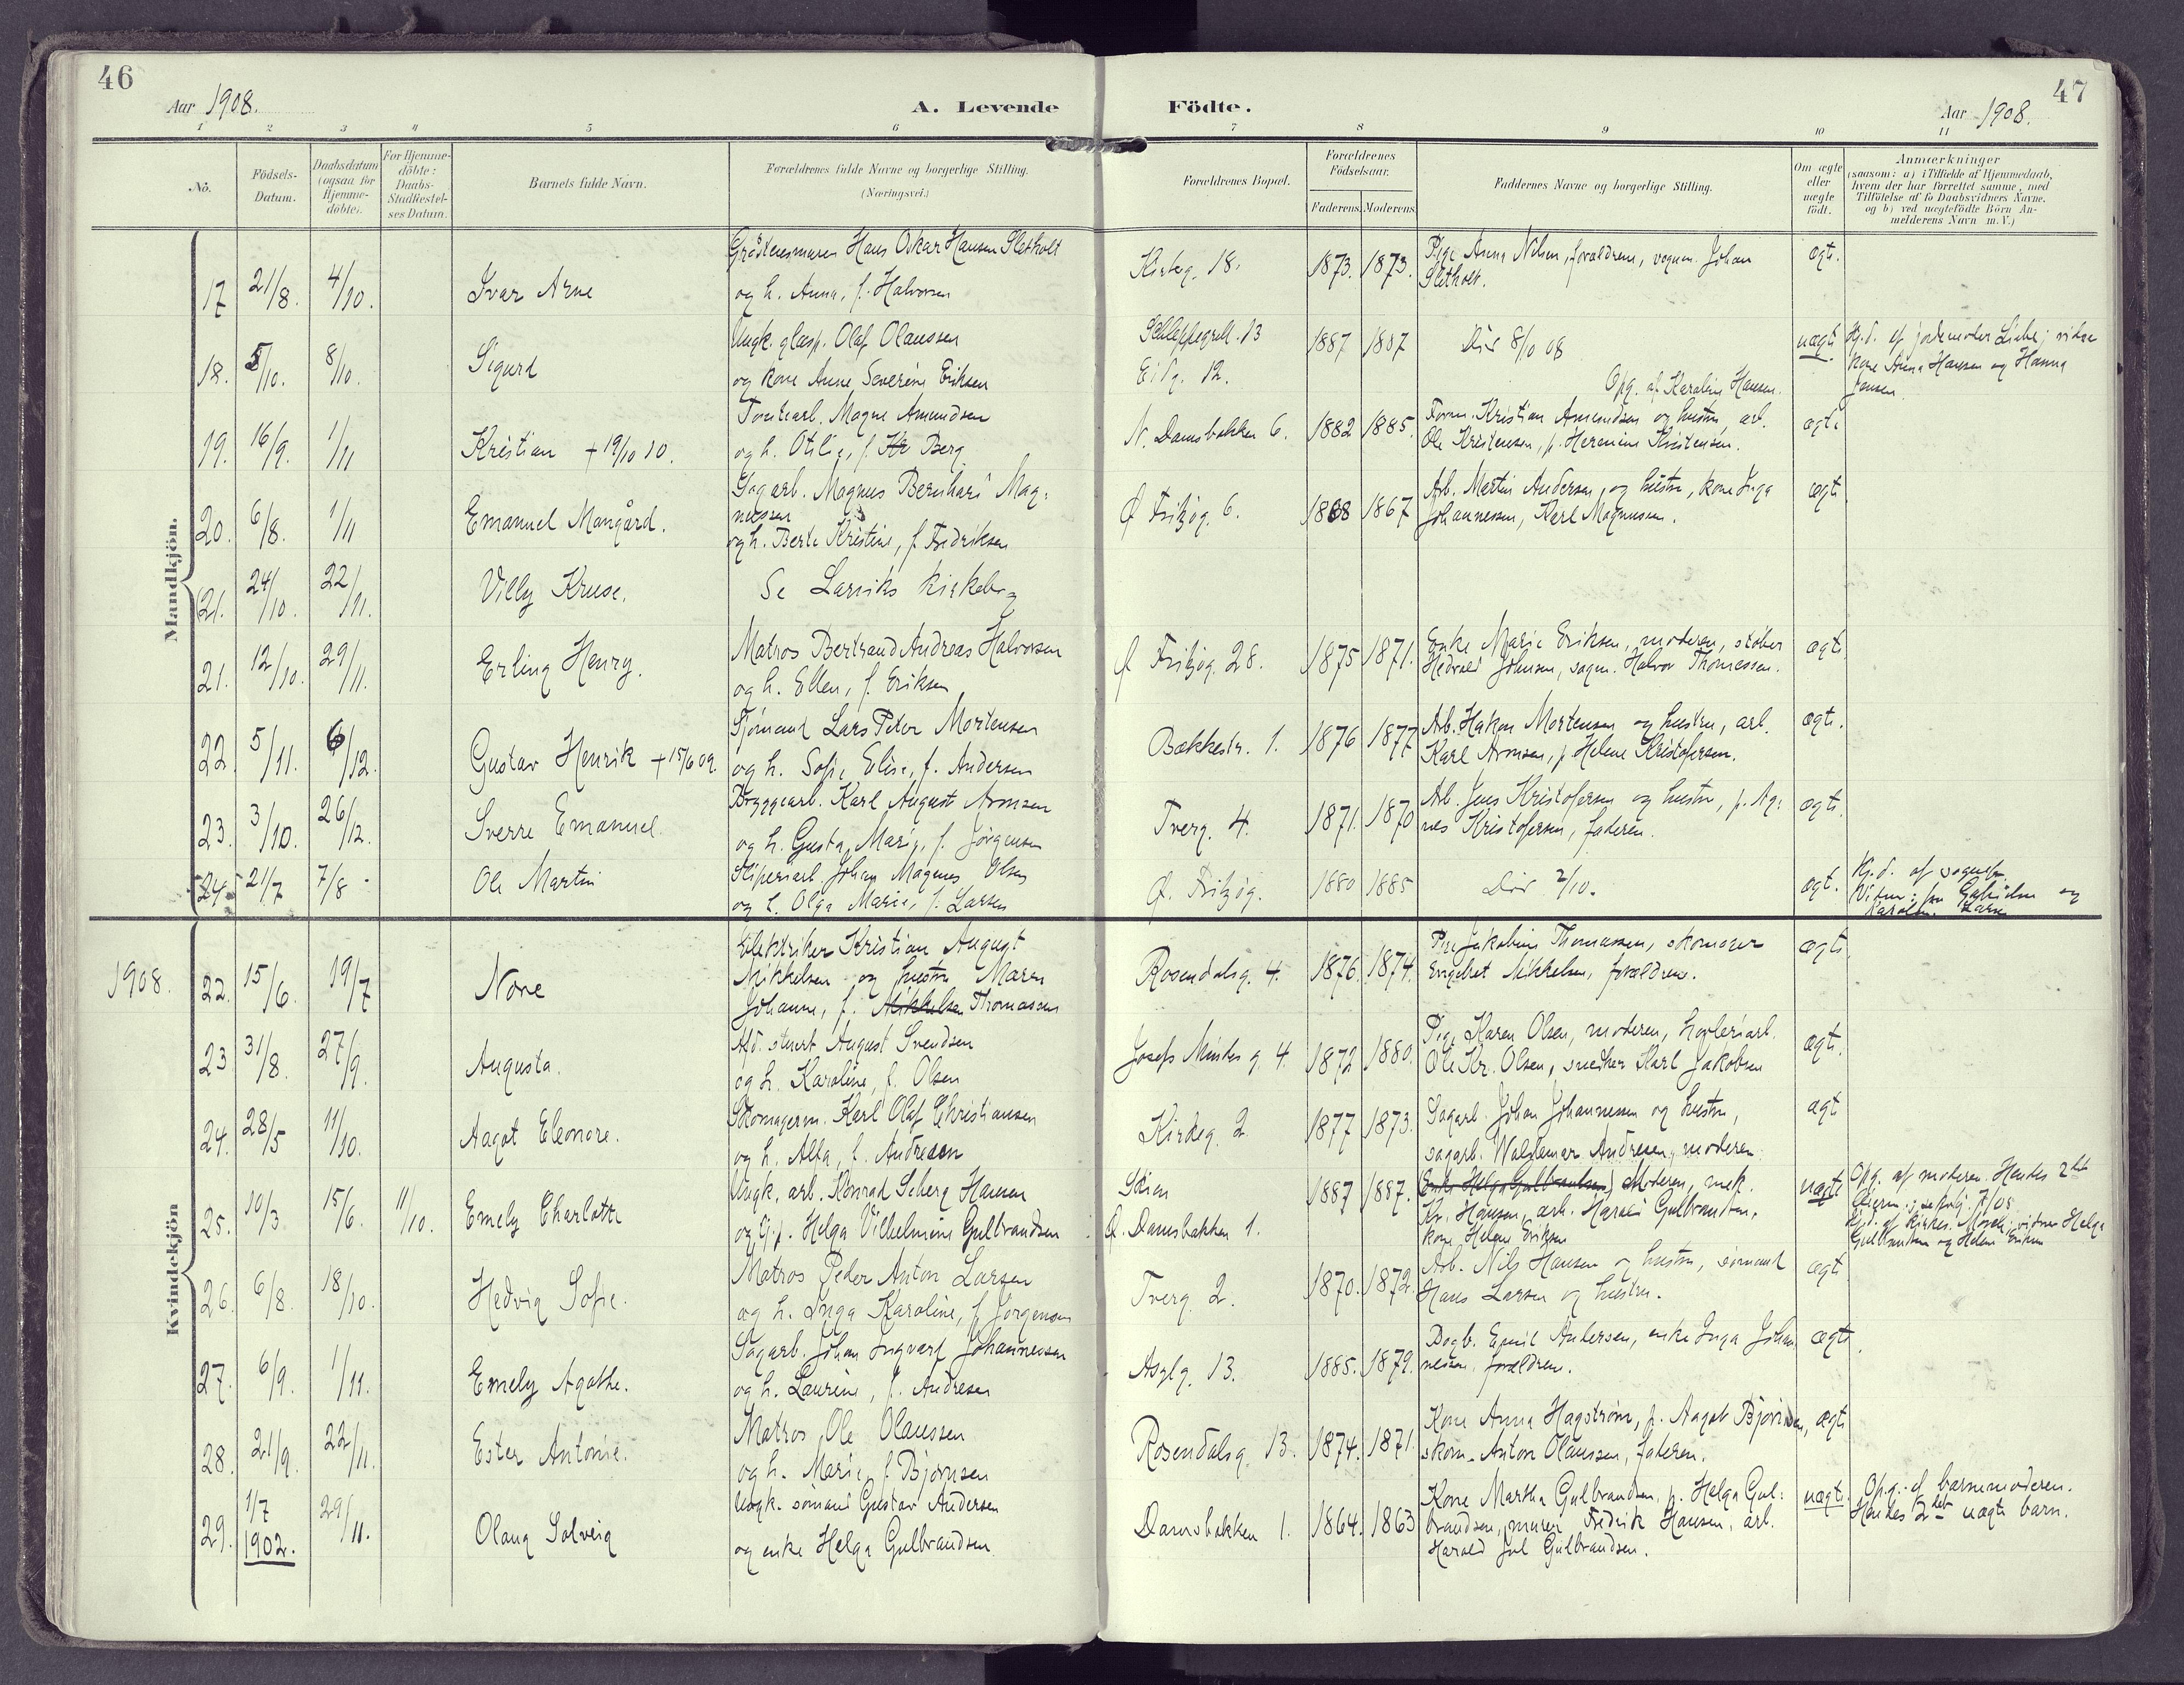 46
Aar 1908.
A. Levende
Födte.
Aar 1908.
47
1 2 3 4 5 6 7 8 9 10 11
Nö.
Födsels-
Datum.
Daabsdatum
(ogsaa for
Hjemme-
döbte).
For Hjemme-
döbte:
Daabs-
Stadfæstel-
ses Datum.
Barnets fulde Navn.
Forældrenes fulde Navne og borgerlige Stilling.
(Næringsvei.)
Forældrenes Bopæl.
Forældrenes
Födselsaar.
Faderens. Moderens.
Faddernes Navne og borgerlige Stilling.
Om ægte
eller
uægte
födt.
Anmærkninger
(saasom: a) i Tilfælde af Hjemmedaab,
hvem der har forrettet samme, med
Tilföielse af to Daabsvidners Navne.
og b) ved uægtefödte Börn An-
melderens Navn m. V.)
Mandkjön.
17 21/8. 4/10. Ivar Arne
Gråstensmurer Hans Oskar Hansen Sletholt
og h. Anna, f. Halvorsen
Kirkeg. 18. 1873. 1873.
Pige Anna Nilsen, forældrene, vognm. Johan
Sletholt.
ægt.
18. 5/10. 8/10. Sigurd
Ungk. glasp. Olaf Olaussen
og kone Anne Severine Eriksen
Schleppegrell. 13
Eikg. 12.
1887 1887
Död 8/10 08
Opg. af Karoline Hansen.
uægt.
Hj.d. af jordemoder Liebe; vidner
kone Anna Hansen og Hanna
Jensen
19. 16/9. 1/11 Kristian + 19/10 10.
Tomtearb. Magne Amundsen
og h. Otilie, f. Kr Berg
N. Damsbakken 6. 1882 1885.
Form. Kristian Amundsen og hustru, arb.
Ole Kristensen, p. Hermine Kristensen.
ægt.
20. 6/8. 1/11 Emanuel Mangård.
Sagarb. Magnus Bernhard Mag-
nussen
og h. Berte Kristine, f. Fredriksen
Ø Fritzøg. 6. 1868 1867
Arb. Martin Andersen og hustru, kone Inga
Johannessen, Karl Magnussen.
ægt.
21. 24/10. 22/11. Villy Kruse.
Se Larviks kirkebog
21. 12/10. 29/11. Erling Henry.
Matros Bertrand Andreas Halvorsen
og h. Ellen, f. Eriksen
Ø Fritzøg. 28. 1875 1871.
Enke Marie Eriksen, moderen, støber
Hedvald Johansen, sagm. Halvor Thomassen.
ægt.
22. 5/11. 6/12. Gustav Henrik + 15/6 09.
Sjømand Lars Peter Mortensen
og h. Sofie Elise, f. Andersen
Bækkestr. 1. 1876 1877
Arb. Hakon Mortensen og hustru, arb.
Karl Aronsen, p. Helene Kristofersen.
ægt.
23. 3/10. 26/12. Sverre Emanuel.
Bryggearb. Karl August Aronsen
og h. Gusta Marie, f. Jörgensen
Tverg. 4. 1871. 1870
Arb. Jens Kristofersen og hustru, p. Ag-
nes Kristofersen, faderen.
ægt.
24. 21/7 7/8. Ole Martin
Sliperiarb. Johan Magnus Olsen
og h. Olga Marie, f. Larsen
Ø. Fritzøg. 1880 1885
Död 2/10.
ægt.
Hj.d. af sognepr.
Kvindekjön
1908.
22. 15/6. 19/7 None
Elektriker Kristian August
Mikkelsen og hustru Maren
Johanne, f. Mikkelsen Thomassen
Rosendalsg. 4. 1876. 1874.
Pige Jakobine Thomassen, skomager
Engebret Mikkelsen, forældrene.
ægt.
23 31/8. 27/9. Augusta.
Afd. stuert August Svendsen
og h. Karoline, f. Olsen
Josefs Mindes g. 4. 1872 1880.
Pige Karen Olsen, moderen, høvleriarb.
Ole Kr. Olsen, snedker Karl Jakobsen
ægt.
24. 28/5 11/10. Aagot Eleonore.
Skomagerm. Karl Olaf Christiansen
og h. Alfa, f. Andresen
Kirkeg. 2. 1877 1873.
Sagarb. Johan Johannessen og hustru,
sagarb. Waldemar Andresen, moderen
ægt
25. 10/3 15/6. 11/10. Emely Charlotte
Ungk. arb. Konrad Scherg Hansen
og Gp. Helga Vilhelmine Gulbrandsen
Skien
Ø. Damsbakken 1.
1887 1887.
Enke Helga Gulbrandsen, Moderen, mek.
Kr. Hansen, arb. Harald Gulbrandsen,
kone Helene Eriksen
uægt.
Opg. af moderen. Hendes 2det
Hj.d. af kirkes. Moseli, vidner Helga
Gulbrandsen og Helene Eriksen
26. 6/8. 18/10. Hedvig Sofie.
Matros Peder Anton Larsen
og h. Inga Karoline, f. Jörgensen
Tverg. 2. 1870. 1872.
Arb. Nils Hansen og hustru, sömand
Hans Larsen og hustru.
ægt
27. 6/9. 1/11. Emely Agathe.
Sagarb. Johan Ingvart Johannessen
og h. Laurine, f. Andresen
Asylg. 13. 1885. 1879.
Dagb. Emil Andersen, enke Inga Johan-
nessen, forældrene.
ægt.
28. 21/9. 22/11. Ester Antonie.
Matros Ole Olaussen
og h. Marie, f. Bjørnsen
Rosendalsg. 13. 1874. 1871.
Kone Anna Hagstrøm, p. Aagot Bjørnsen,
skom. Anton Olaussen, faderen.
ægt.
29. 1/7 1902. 29/11. Olaug Solveig
Ungk. sömand Gustav Andersen
og enke Helga Gulbrandsen
Damsbakken 1. 1864. 1863
Kone Martha Gulbrandsen, p. Helga Gul-
brandsen, murer Fredrik Hansen, arb.
Harald Jul Gulbrandsen.
uægt.
Opg. af barnemoderen.
Hendes 2det uægte barn.